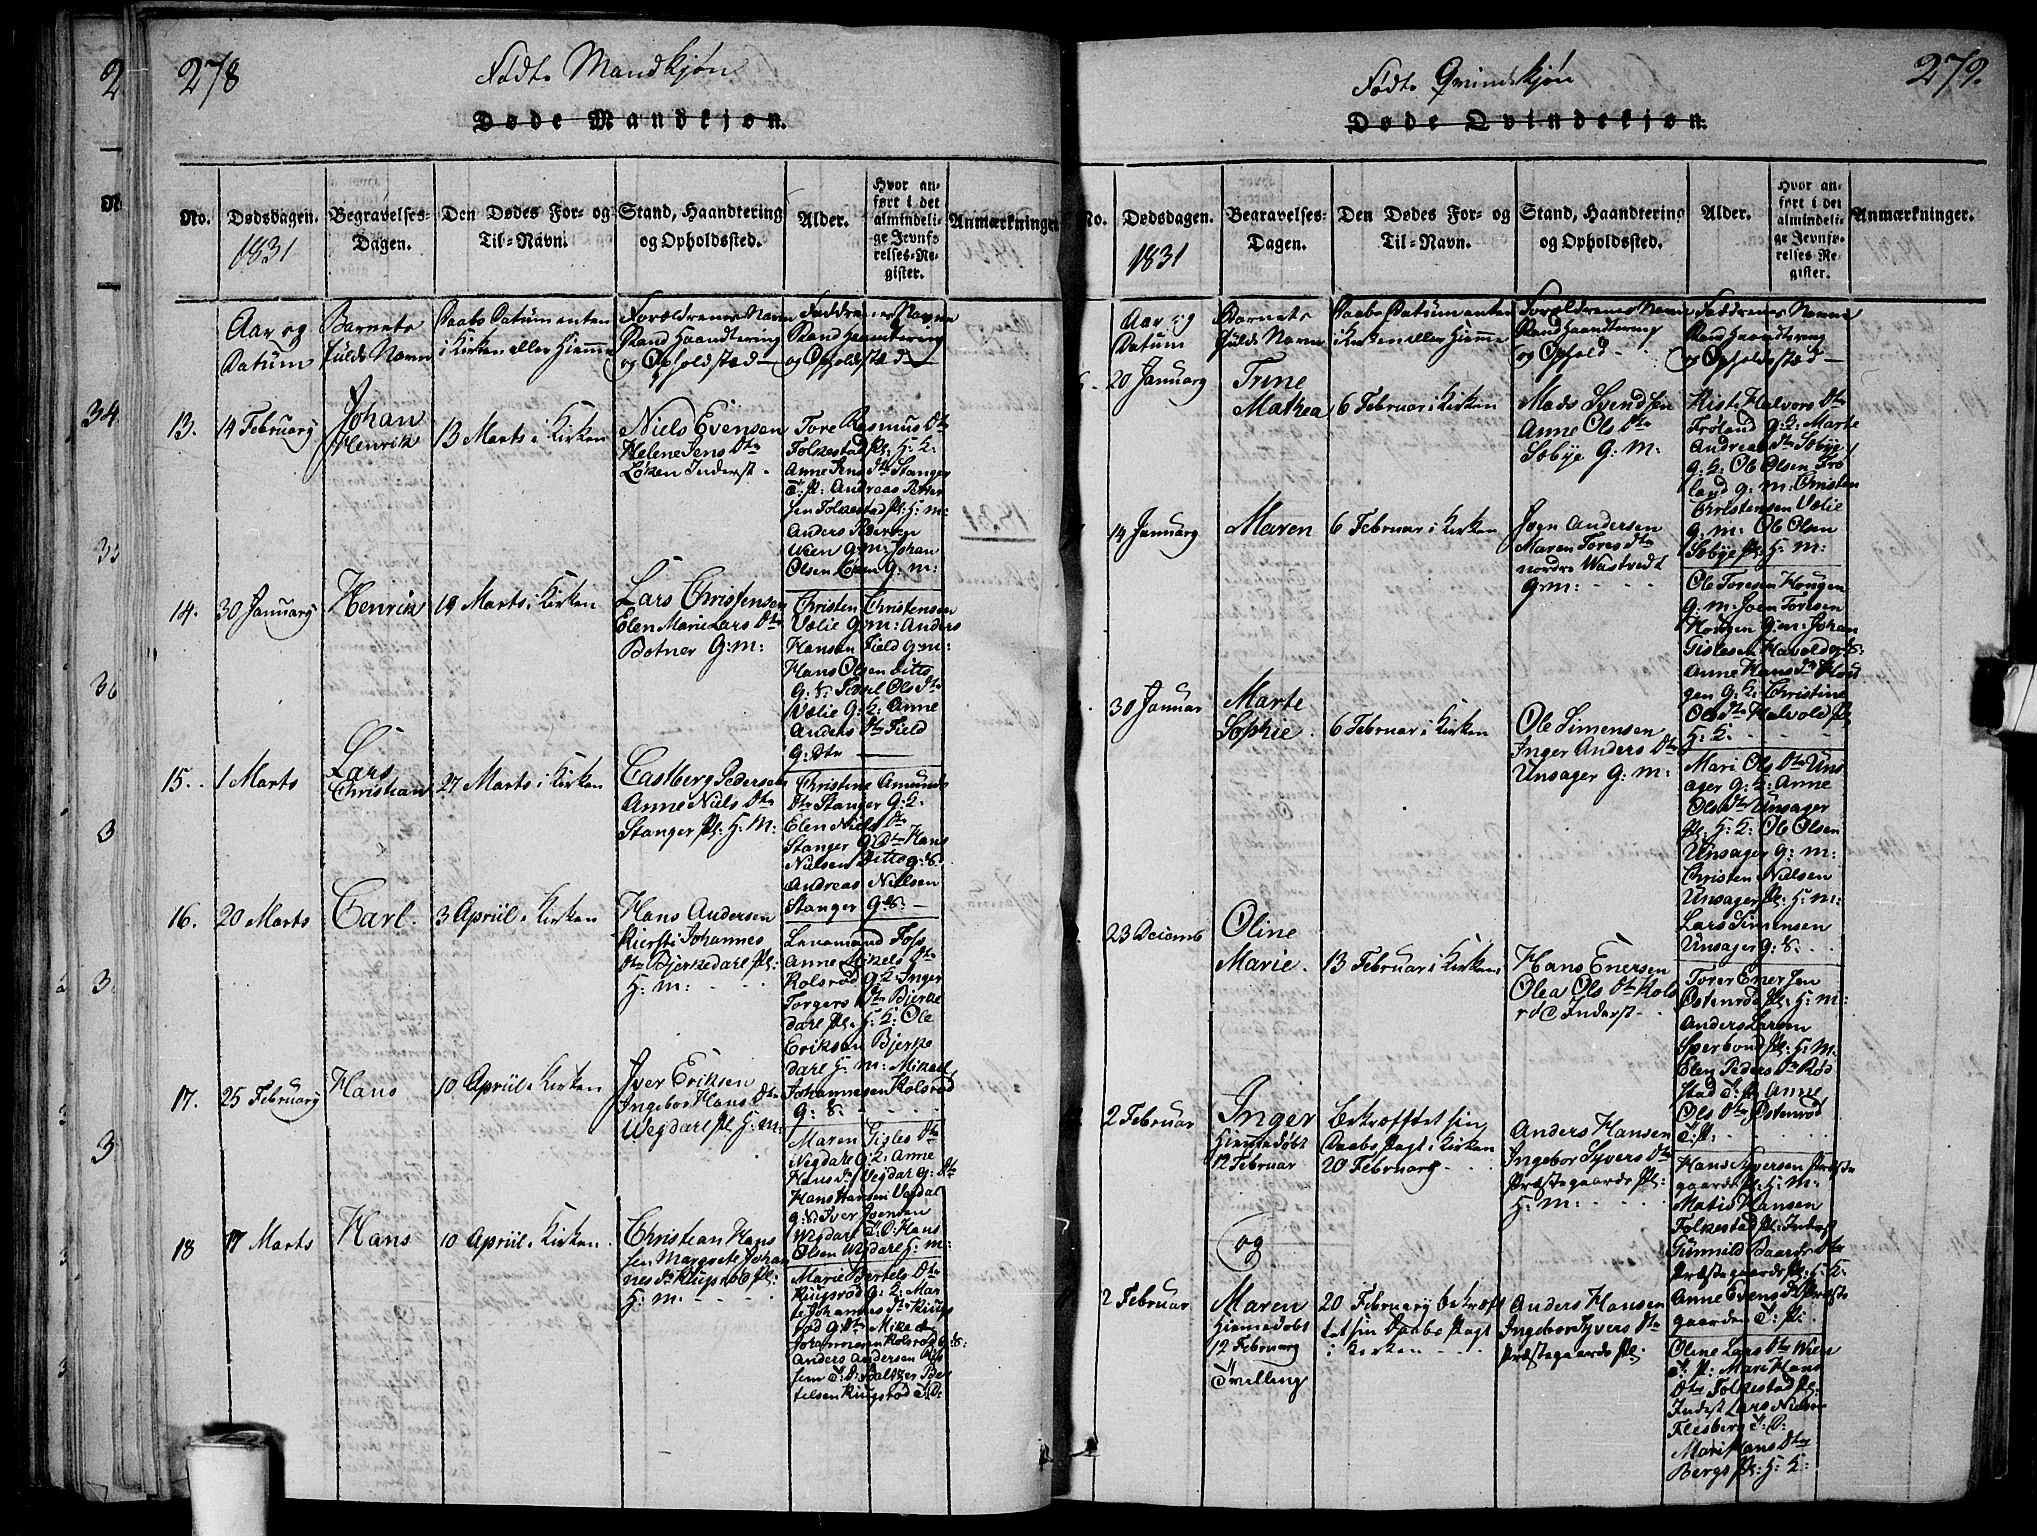 278
Fødte Mandkjøn
Døde Mandkjøn.
No.
Dødsdagen.
1831
Begravelses-
Dagen.
Den Dødes For- og
Til-Navn.
Stand, Haandtering
og Opholdssted.
Alder.
Hvor an-
ført i det
almindeli-
ge Jevnfø-
relses-Re-
gister.
Anmærkninger
Aar og
Datum
Barnets
fulde Navn
Daabs Datum enten
i Kirken eller Hiemme
Forældrenes Navn
Stand Haandtering
og Opholdsted
Faddrenes Navne
Stand Haandtering
og Opholdsted
13.
14 Februarÿ
Johan
Henrik
13 Marts i Kirken
Niels Evensen
Helene Jens Dtr
Løken Inderst -
Tore Rasmus Dtr
Folkestad Pl: H: K:
Anne Jens Dtr Stanger
T: P: Andreas Peter
sen Folkestad Pl: H: m:
Anders Pedersen
Wien G: m: Johan
Olsen Løken G: m:
14.
30 Januarÿ
Henrik
19 Marts i Kirken
Lars Christensen
Elen Marie Lars Dtr
Botner G: m:
Christen Christensen
Vælie G: m: Anders
Hansen Field G: m:
Hans Olsen ditto
G: S: Ols Dtr
Vælie G: K: Anne
Anders Dtr Field
G: Dtr
15.
1 Marts
Lars
Christian
27 Marts i Kirken
Castberg Pedersen
Anne Niels Dtr
Stanger Pl: H: M:
Christine Amunds
Dtr Stanger G: K:
Elen Niels Dtr
Stanger G: Dtr Hans
Nielsen Ditto G: S:
Andreas Nielsen
Stanger G: S: -
16.
20 Marts
Carl.
3 Apriil i Kirken
Hans Andersen
Kiersti Johannes
Dtr Bjerkedarl Pl:
H: m:
Lensmand Foss
Anne Mikels Dtr
Kolsrød G: K: Inger
Torgers Dtr Bjerke
darl Pl: H: K: Ole
Eriksen Bjerke
darl H: m: Mikael
Johannesen Kolsrød
G: S:
17.
25 Februarÿ
Hans
10 Apriil i Kirken
Iver Eriksen
Ingebor Hans Dtr
Wegdarl Pl: H: m:
Maren Gisles Dtr
Wegdarl G: K: Anne
Hans Dtr Vegdarl G: Dtr
Hans Hansen Vegdal
G: S: Iver
Wegdarl T: D: Hans
Olsen Wegdarl H: m:
18
17 Marts
Hans
10 Apriil i Kirken.
Christian Hans
sen Margrete Johan
nes Dtr Kiugsrød Pl:
H: m:
Marie Bertels Dtr
Kiugsrød G: K: Mar
te Johannes Dtr Kiugs
rød G: Dtr Mikael
Johannesen Kolsrød G: S:
Anders Andersen
T: D:
telsen Kiugsrød T: D:
279.
Fødte Qvindekjøn
Døde Qvindekjøn.
No.
Dødsdagen.
1831
Begravelses-
Dagen.
Den Dødes For- og
Til-Navn.
Stand, Haandtering
og Opholdssted.
Alder.
Hvor an-
ført i det
almindeli-
ge Jevnfø-
relses-Re-
gister.
Anmærkninger.
Aar og
Datum
Barnets
fulde Navn
Daabs Datum enten
i Kirken eller Hiemme
Forældrenes Navn
Stand Haandtering
og Ophold -
Faddrenes Navne
Stand Haandtering
og Opholdsted
20 Januarÿ
Trine
Mathea
6 Februar i Kirken
Mads Svendsen
Anne Ols Dtr
Sobye G: M:
Kisti Halvors Dtr
Froland G: K: Marte
Andreas Dtr Sobye
G: K: Ole Olsen Fro
land G: m: Christen
Christensen Vælie
G: m: Ole Olsen
Sobye Pl: H: m:
14 Januarÿ
Maren
6 Februar i Kirken
Joen Andersen
Maren Tores Dtr
nordre Wastvedt
G: m:
Ole Toresen Hougen
G: m: Joen Toresen
Hougen G: m: Johan
Gislesen Havold G: S:
Anne Hans Dtr Hou
gen G: K: Christine
Ols Dtr Halvold Pl
H: K:
30 Januar
Marte
Sophie.
6 Februar i Kirken
Ole Simensen
Inger Anders Dtr
Unsager G: m:
Mari Ols Dtr Uns
ager G: K: Anne
Ols Dtr Unsager
Pl: H: K: Ole Olsen
Unsager G: m:
Christen Nielsen
Unsager Pl: H: m:
Lars Simensen
Unsager G: S:
23 Decemb
Oline
Marie.
13 Februar i Kirken
Hans Enersen
Olea Ols Dtr Kols
rød Inderst -
Torer Enersen
Østenrød Pl: H: m:
Anders Larsen
Sperbond Pl: H: M:
Elen Peders Dtr Rød
stad T: P: Anne
Ols Dtr Østenrød
T: P:
2 Februar
Inger
Hiemmedøbt
12 Februar
bekræftet sin
Daabs Pagt i Kirken
20 Februarÿ
Anders Hansen
Ingebor Syvers Dtr
Præstegaards Pl:
H: m:
Hans Syversen Præste
gaards Pl: H: M:
Matis Hansen
Folkestad Pl: Inderst
Gunnild Baards Dtr
Præstegaards Pl: H: K:
Anne Evens Dtr Præste
gaarden T: P:
og
2 Februar
Maren
Hiemmedøbt
12 Februarÿ
Tvilling
20 Februarÿ bekræft
tet sin Daabs Pagt
i Kirken
Anders Hansen
Ingebor Syvers Dtr
Præstegaards Pl:
Oline Lars Dtr Wien
T: P: Mari Hans
Dtr Folkestad Pl:
Inderst Lars Nielsen
Flesberg T: D:
Mari Hans Dtr
Bergs Pl: H: K: